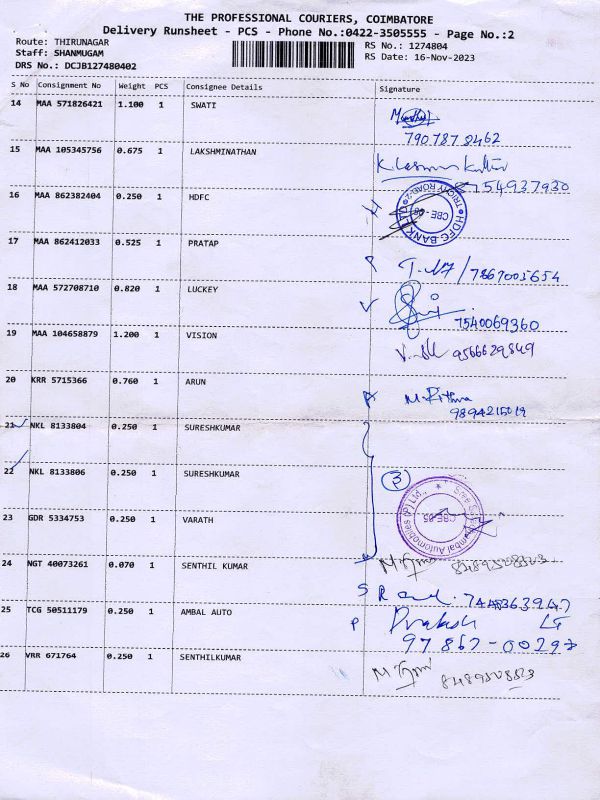 THE PROFESSIONAL COURIERS, COIMBATORE
Delivery Runsheet - PCS - Phone No.:0422-3505555 - Page No.:2
Route: THIRUNAGAR
RS No.: 1274804
Staff: SHANMUGAM
RS Date: 16-Nov-2023
DRS No.: DCJB127480402
S No Consignment No Weight PCS Consignee Details Signature
14 MAA 571826421 1.100 1 SWATI
7907878462
15 MAA 105345756 0.675 1 LAKSHMINATHAN
754937930
16 MAA 862382404 0.250 1 HDFC
HDFC BANK LTD
TRICHY ROAD
CBE
17 MAA 862412033 0.525 1 PRATAP
7867005654
18 MAA 572708710 0.820 1 LUCKEY
7540069360
19 MAA 104658879 1.200 1 VISION
9566629849
20 KRR 5715366 0.760 1 ARUN
M. Rithva
21 NKL 8133804 0.250 1 SURESHKUMAR
22 NKL 8133806 0.250 1 SURESHKUMAR
3
Automobiles (P) Ltd.,
CBE-05
23 GDR 5334753 0.250 1 VARATH
24 NGT 40073261 0.070 1 SENTHIL KUMAR
25 TCG 50511179 0.250 1 AMBAL AUTO
Prakash
97867-00297
26 VRR 671764 0.250 1 SENTHILKUMAR
8489508523